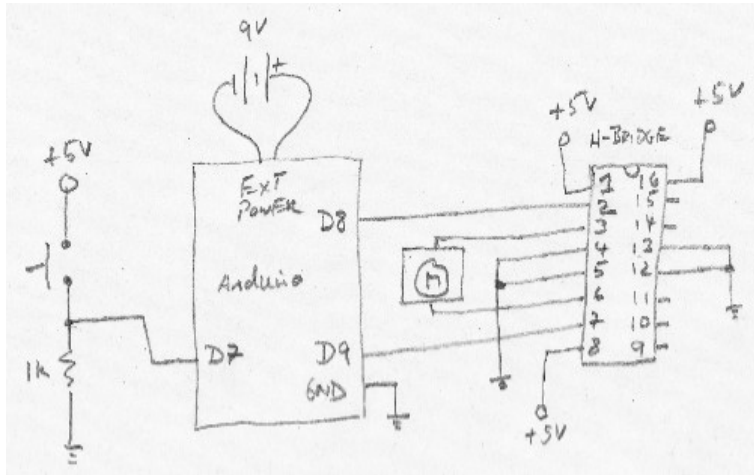 9V
+
+5V
+5V
H-BRIDGE
+5V
EXT
POWER
D8
Arduino
D7
D9
GND
1K
M
1 16
2 15
3 14
4 13
5 12
6 11
7 10
8 9
+5V